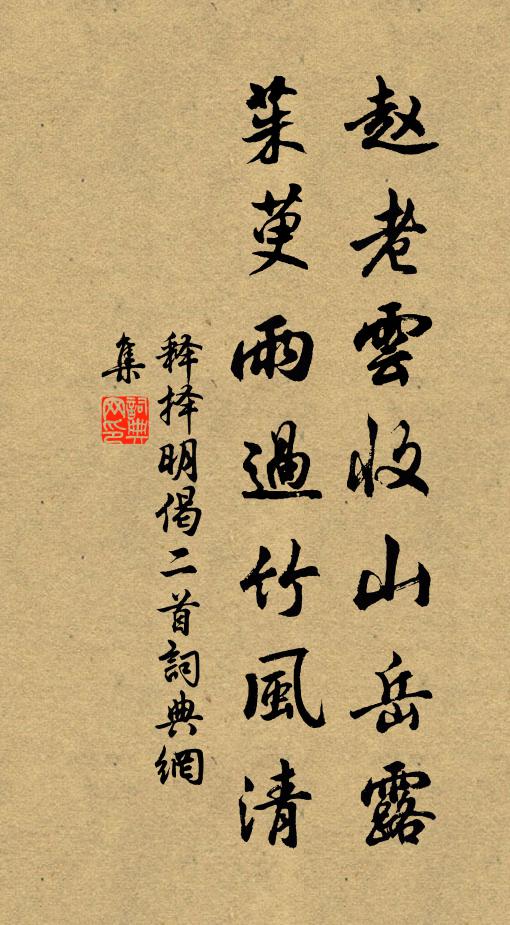 赵老雲收山岳露
茱萸雨過竹風清
释择明偈二首詞典網
集
詞典网印